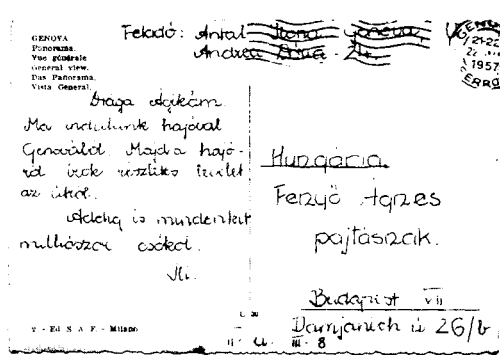 GENOVA
Panorama.
Vue générale
General view.
Das Panorama.
Vista General.
Feladó: Antal Ilona Genova,
Andrea Dória 24.
21-22
1957
FERRO
Drága Ágikám.
Ma indulunk hajóval
Genovából. Majd a hajó-
ról írok részletes levelet
az útról.
Addig is mindenkit
milliószor csókol.
Ili.
Hungária.
Fenyő Ágnes
pajtásnak.
Budapest VII
Damjanich ú 26/b
III. 8
Ed. S. A. F. - Milano